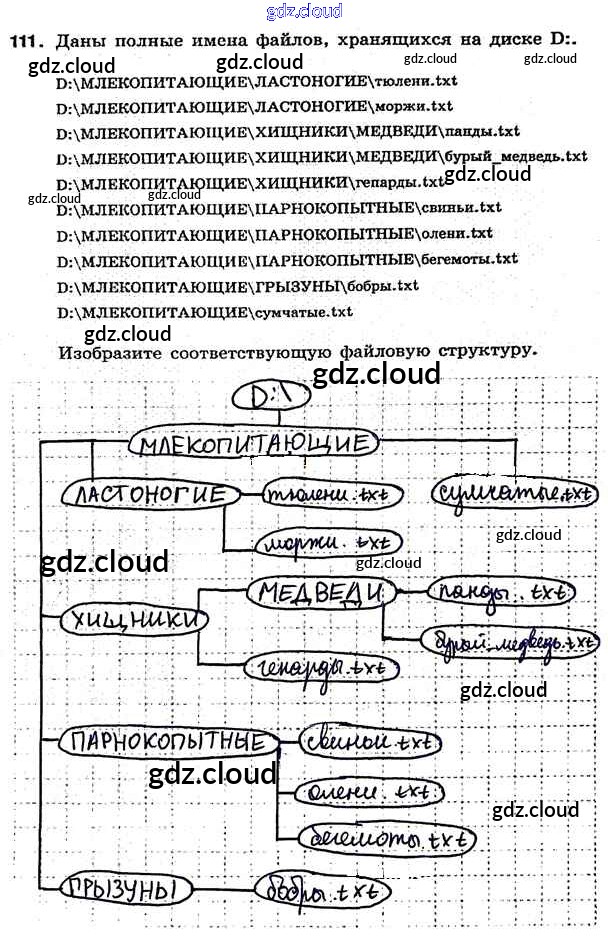 gdz.cloud
111. Даны полные имена файлов, хранящихся на диске D:.
gdz.cloud gdz.cloud
D:\МЛЕКОПИТАЮЩИЕ\ЛАСТОНОГИЕ\тюлени.txt
D:\МЛЕКОПИТАЮЩИЕ\ЛАСТОНОГИЕ\моржи.txt
D:\МЛЕКОПИТАЮЩИЕ\ХИЩНИКИ\МЕДВЕДИ\панды.txt
D:\МЛЕКОПИТАЮЩИЕ\ХИЩНИКИ\МЕДВЕДИ\бурый_медведь.txt
D:\МЛЕКОПИТАЮЩИЕ\ХИЩНИКИ\гепарды.txt gdz.cloud
gdz.cloud gdz.cloud
D:\МЛЕКОПИТАЮЩИЕ\ПАРНОКОПЫТНЫЕ\свиньи.txt
D:\МЛЕКОПИТАЮЩИЕ\ПАРНОКОПЫТНЫЕ\олени.txt
D:\МЛЕКОПИТАЮЩИЕ\ПАРНОКОПЫТНЫЕ\бегемоты.txt
D:\МЛЕКОПИТАЮЩИЕ\ГРЫЗУНЫ\бобры.txt
D:\МЛЕКОПИТАЮЩИЕ\сумчатые.txt
gdz.cloud gdz.cloud
Изобразите соответствующую файловую структуру.
gdz.cloud
D:\
МЛЕКОПИТАЮЩИЕ
ЛАСТОНОГИЕ тюлени.txt сумчатые.txt
моржи.txt
gdz.cloud gdz.cloud
МЕДВЕДИ панды.txt
ХИЩНИКИ
бурый_медведь.txt
гепарды.txt
gdz.cloud
ПАРНОКОПЫТНЫЕ свиньи.txt
gdz.cloud
олени.txt
gdz.cloud
бегемоты.txt
ГРЫЗУНЫ бобры.txt
gdz.cloud